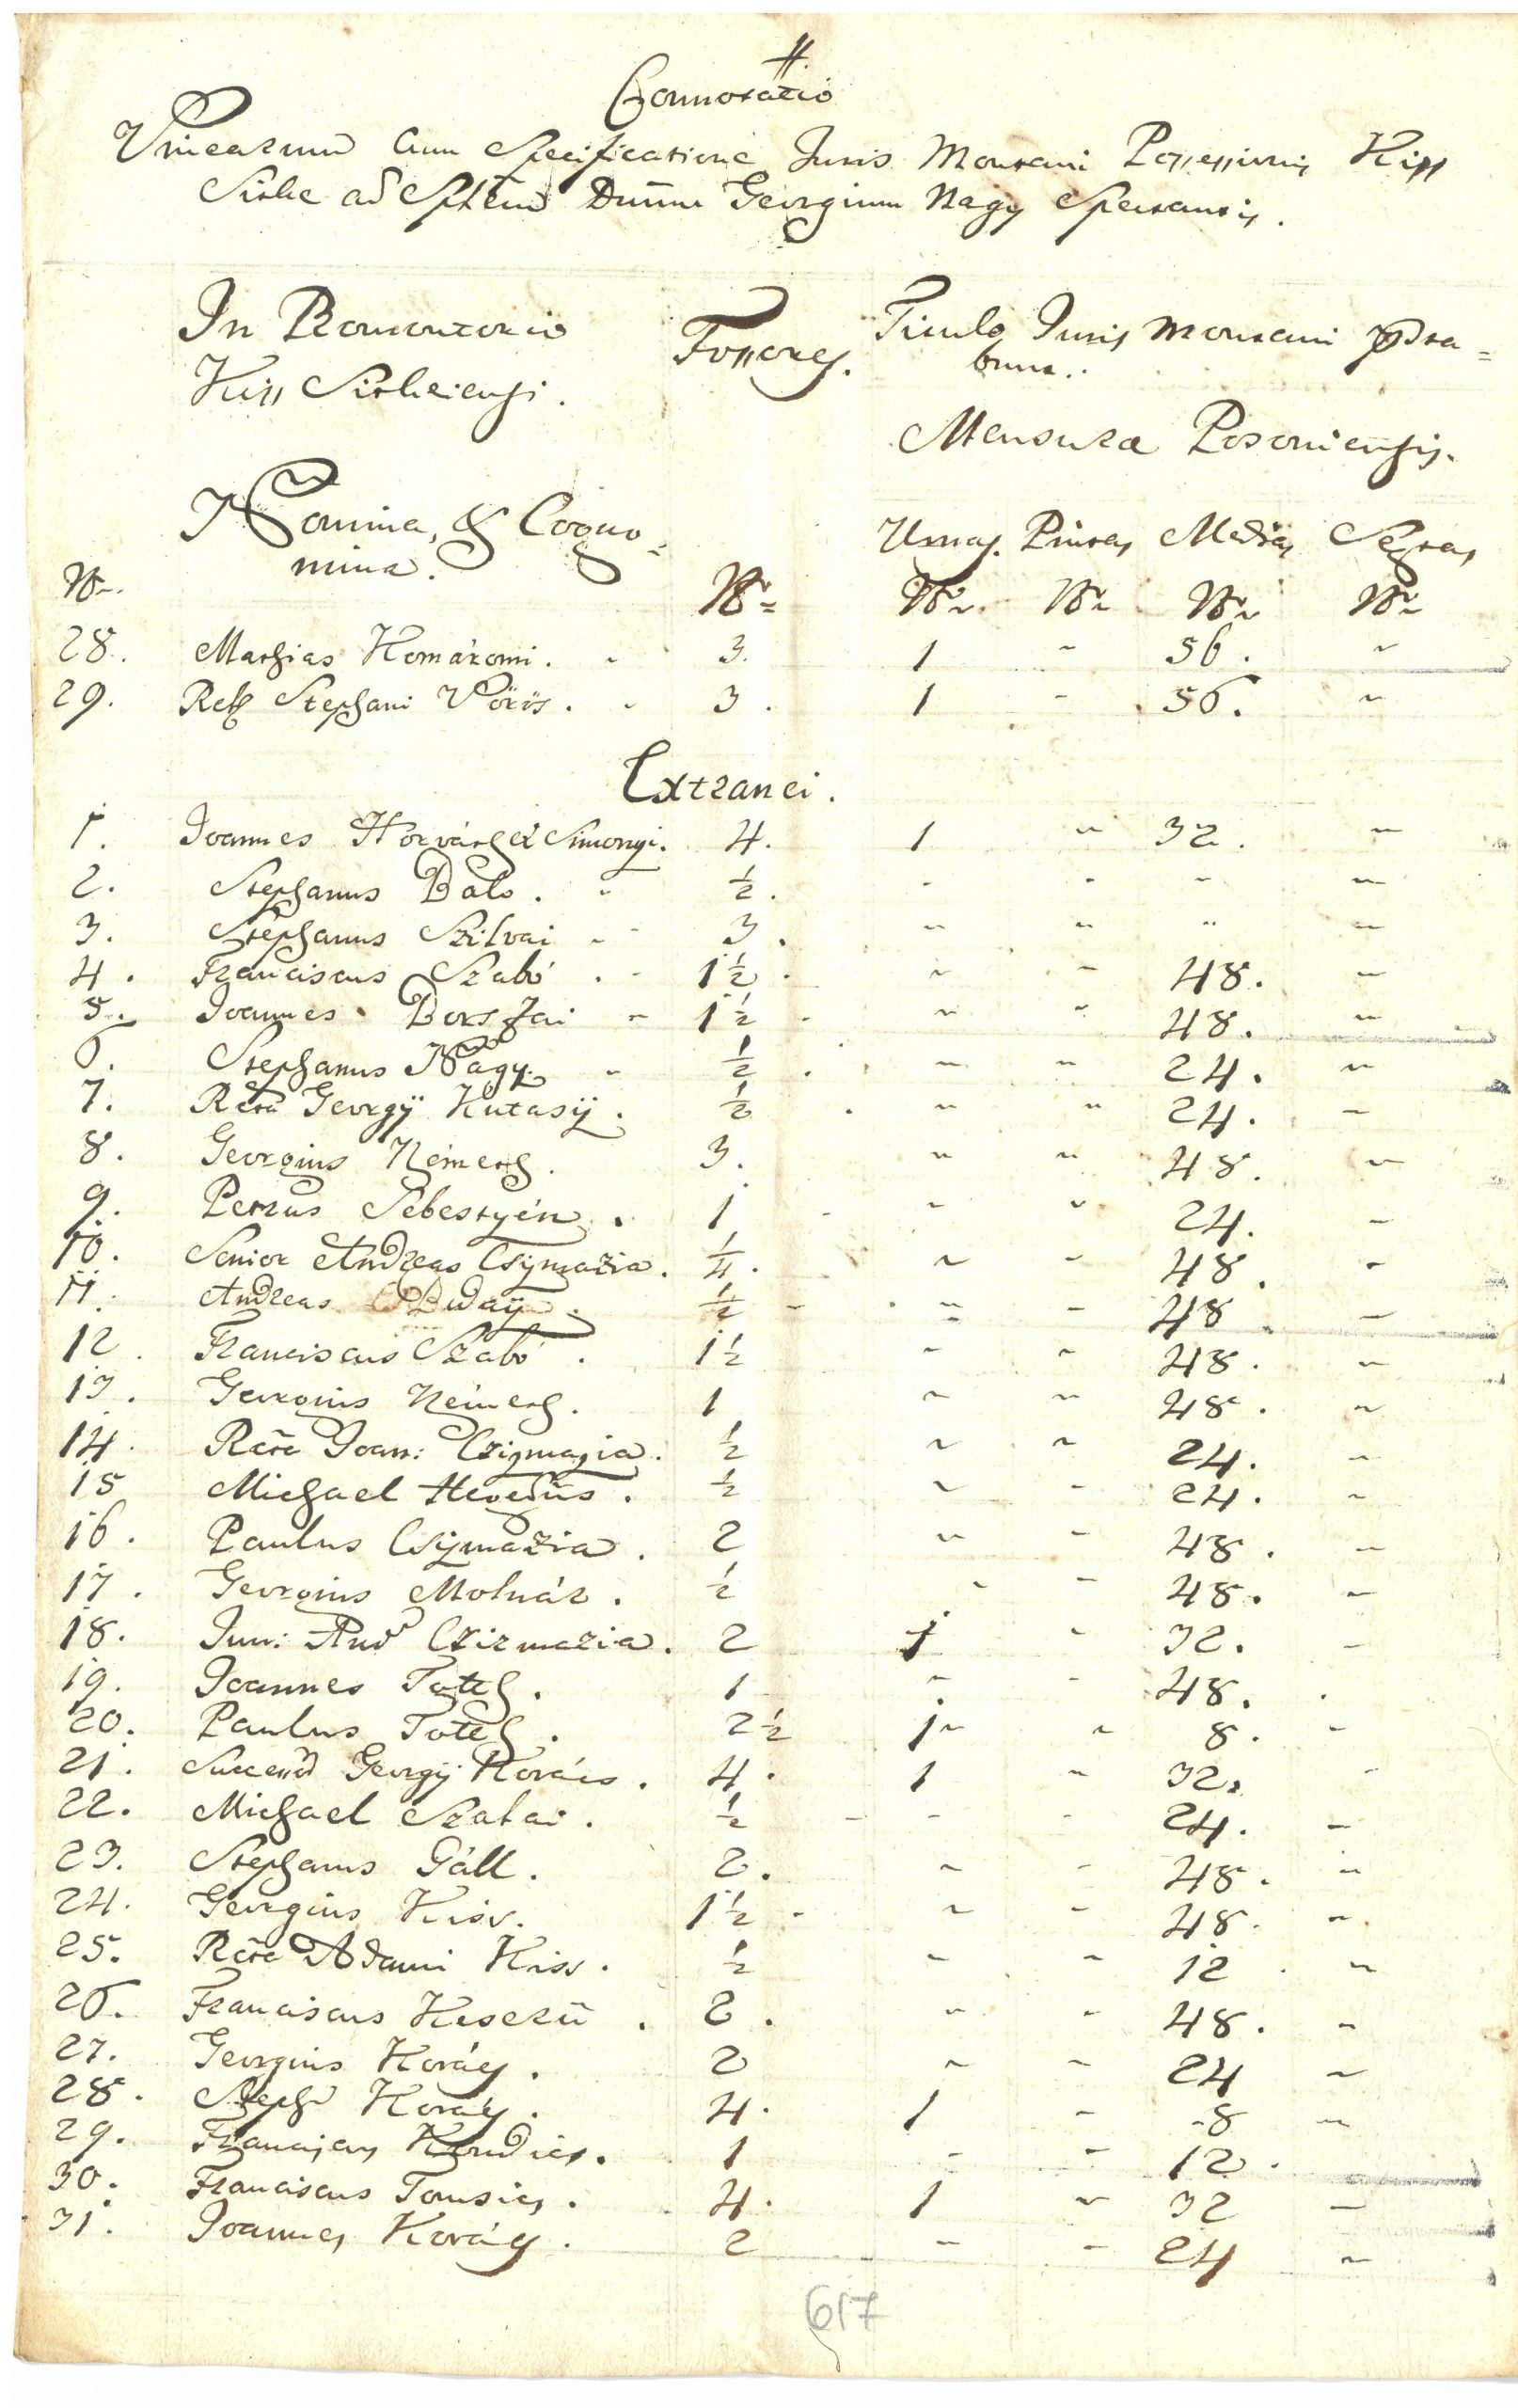 #.
Connotatio
Vinearum cum Specificatione Juris Montani Possessionis Kiss
Sitke ad Spettem Dnum Georgium Nagy Spectantis.
In Promontorio
Kiss Sitkeiensi.
Fossores.
Titulo Juris Montani praesta=
bunt..
Mensura Posoniensis.
Nomina, & Cogno=
mina.
Urnas. Pintas Medias Seytas
Nr. Nr= Nr. Nr. Nr. Nr.
28. Mathias Komáromi. - 3. 1 - 56. -
29. Rel Stephani Vörös. - 3. 1 - 56. -
Extranei.
1. Joannes Horváth et Simonyi. 4. 1 - 32. -
2. Stephanus Balo. - 1/2. - - - -
3. Stephanus Szilvai - - 3. - - - -
4. Franciscus Szabó . - 1 1/2. - - 48. -
5. Joannes Borszai - 1 1/2 - - - 48. -
6. Stephanus Nagy. - 1/2. - - 24. -
7. Rcta Georgÿ Kutasÿ. 1/2. - - 24. -
8. Georgius Németh. 3. - - 48. -
9. Petrus Sebestyén. 1 - - - 24. -
10. Senior Andreas Csizmazia. 1/4. - - 48. -
11. Andreas Buday. 1/2 - - - 48. -
12. Franciscus Szabó. 1 1/2 - - 48. -
13. Georgius Németh. 1 - - 48. -
14. Rcta Joan: Czizmazia. 1/2 - - 24. -
15 Michael Hegedüs. 1/2 - - 24. -
16. Paulus Csizmazia. 2 - - 48. -
17. Georgius Molnár. 1/2 - - 48. -
18. Jun: And Czizmazia. 2 1 - 32. -
19. Joannes Toth. 1 - - 48. .
20. Paulus Toth. 2 1/2 1 - - 8. -
21. Georgÿ Kovács. 4. 1 - 32. -
22. Michael Szalai. 1/2 - - - 24. -
23. Stephanus Gáll. 2. - - 48. -
24. Georgius Kiss. 1 1/2 - - - 48. -
25. Rcta Adami Kiss. 1/2 - - 12. -
26. Franciscus Keserü. 2. - - 48. -
27. Georgius Kovács. 2 - - 24 -
28. Steph Kovács. 4. 1 - -8 -
29. Franciscus Kondics. 1 - - 12.
30. Franciscus Tomsics. 4. 1 - 32 -
31. Joannes Kovács. 2 - - 24 -
617